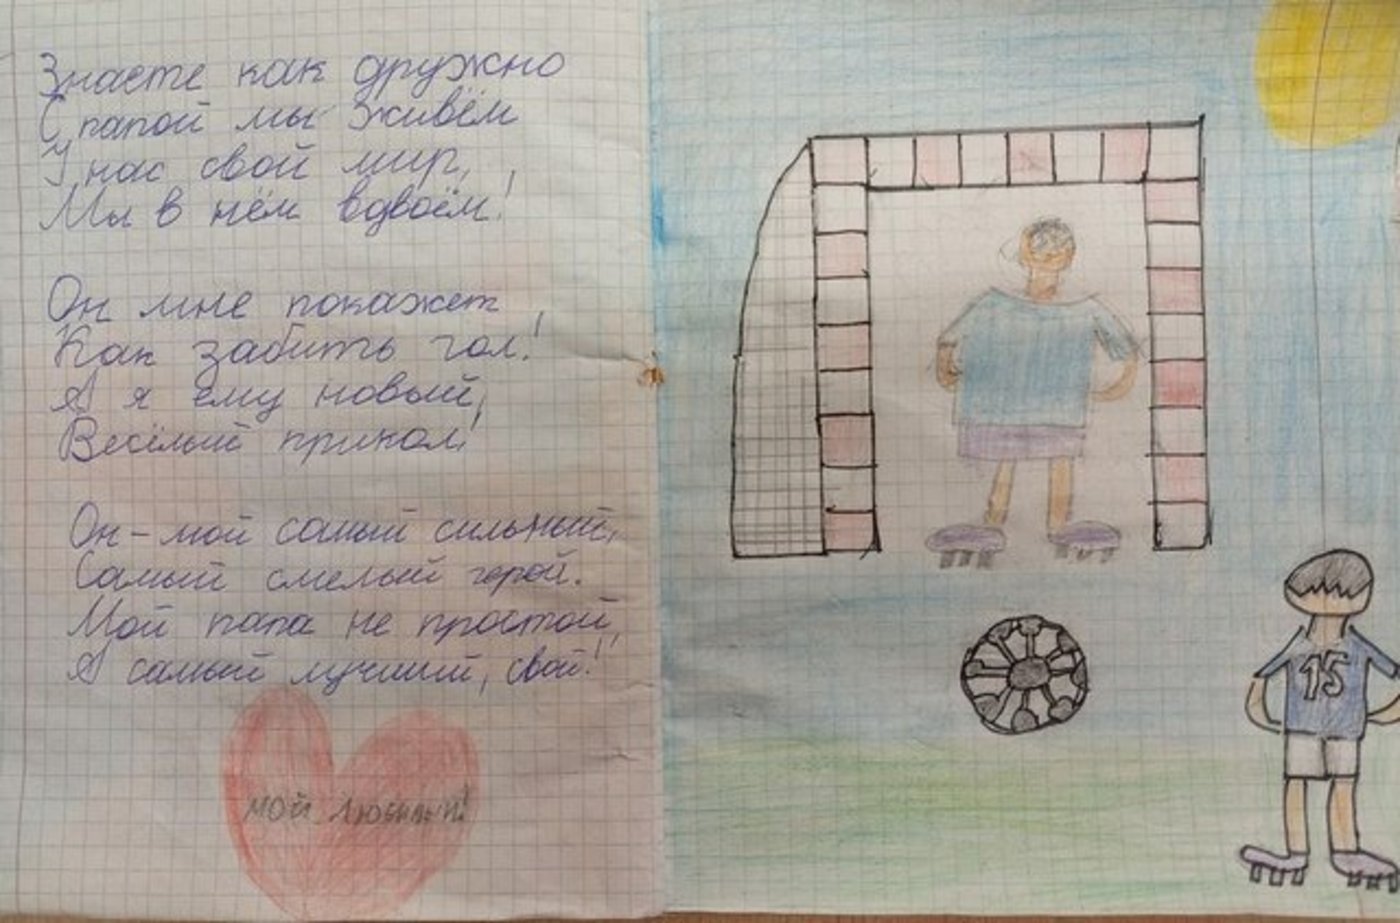 Знаете как дружно
С папой мы живём
У нас свой мир,
Мы в нём вдвоём!
Он мне покажет
Как забить гол!
А я ему новый,
Весёлый прикол!
Он - мой самый сильный,
Самый смелый герой.
Мой папа не простой,
А самый лучший, свой!
МОЙ Любимый!
15